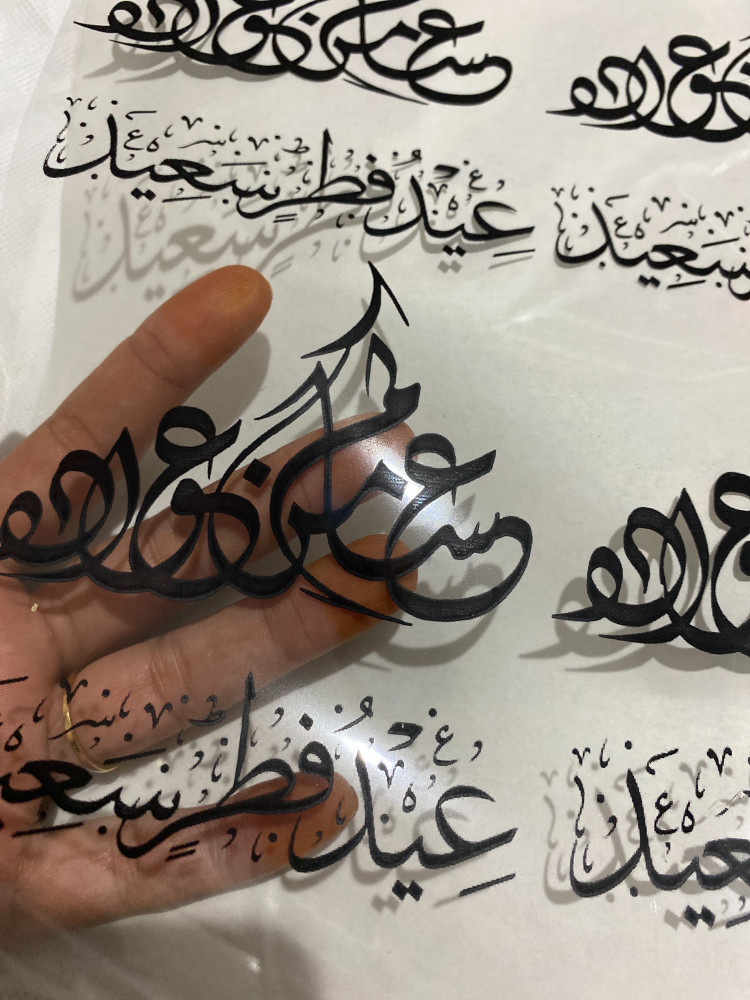 عساكم من عواده
عيد فطر سعيد
سعيد
عساكم من عواده
عواده
عيد فطر سعيد